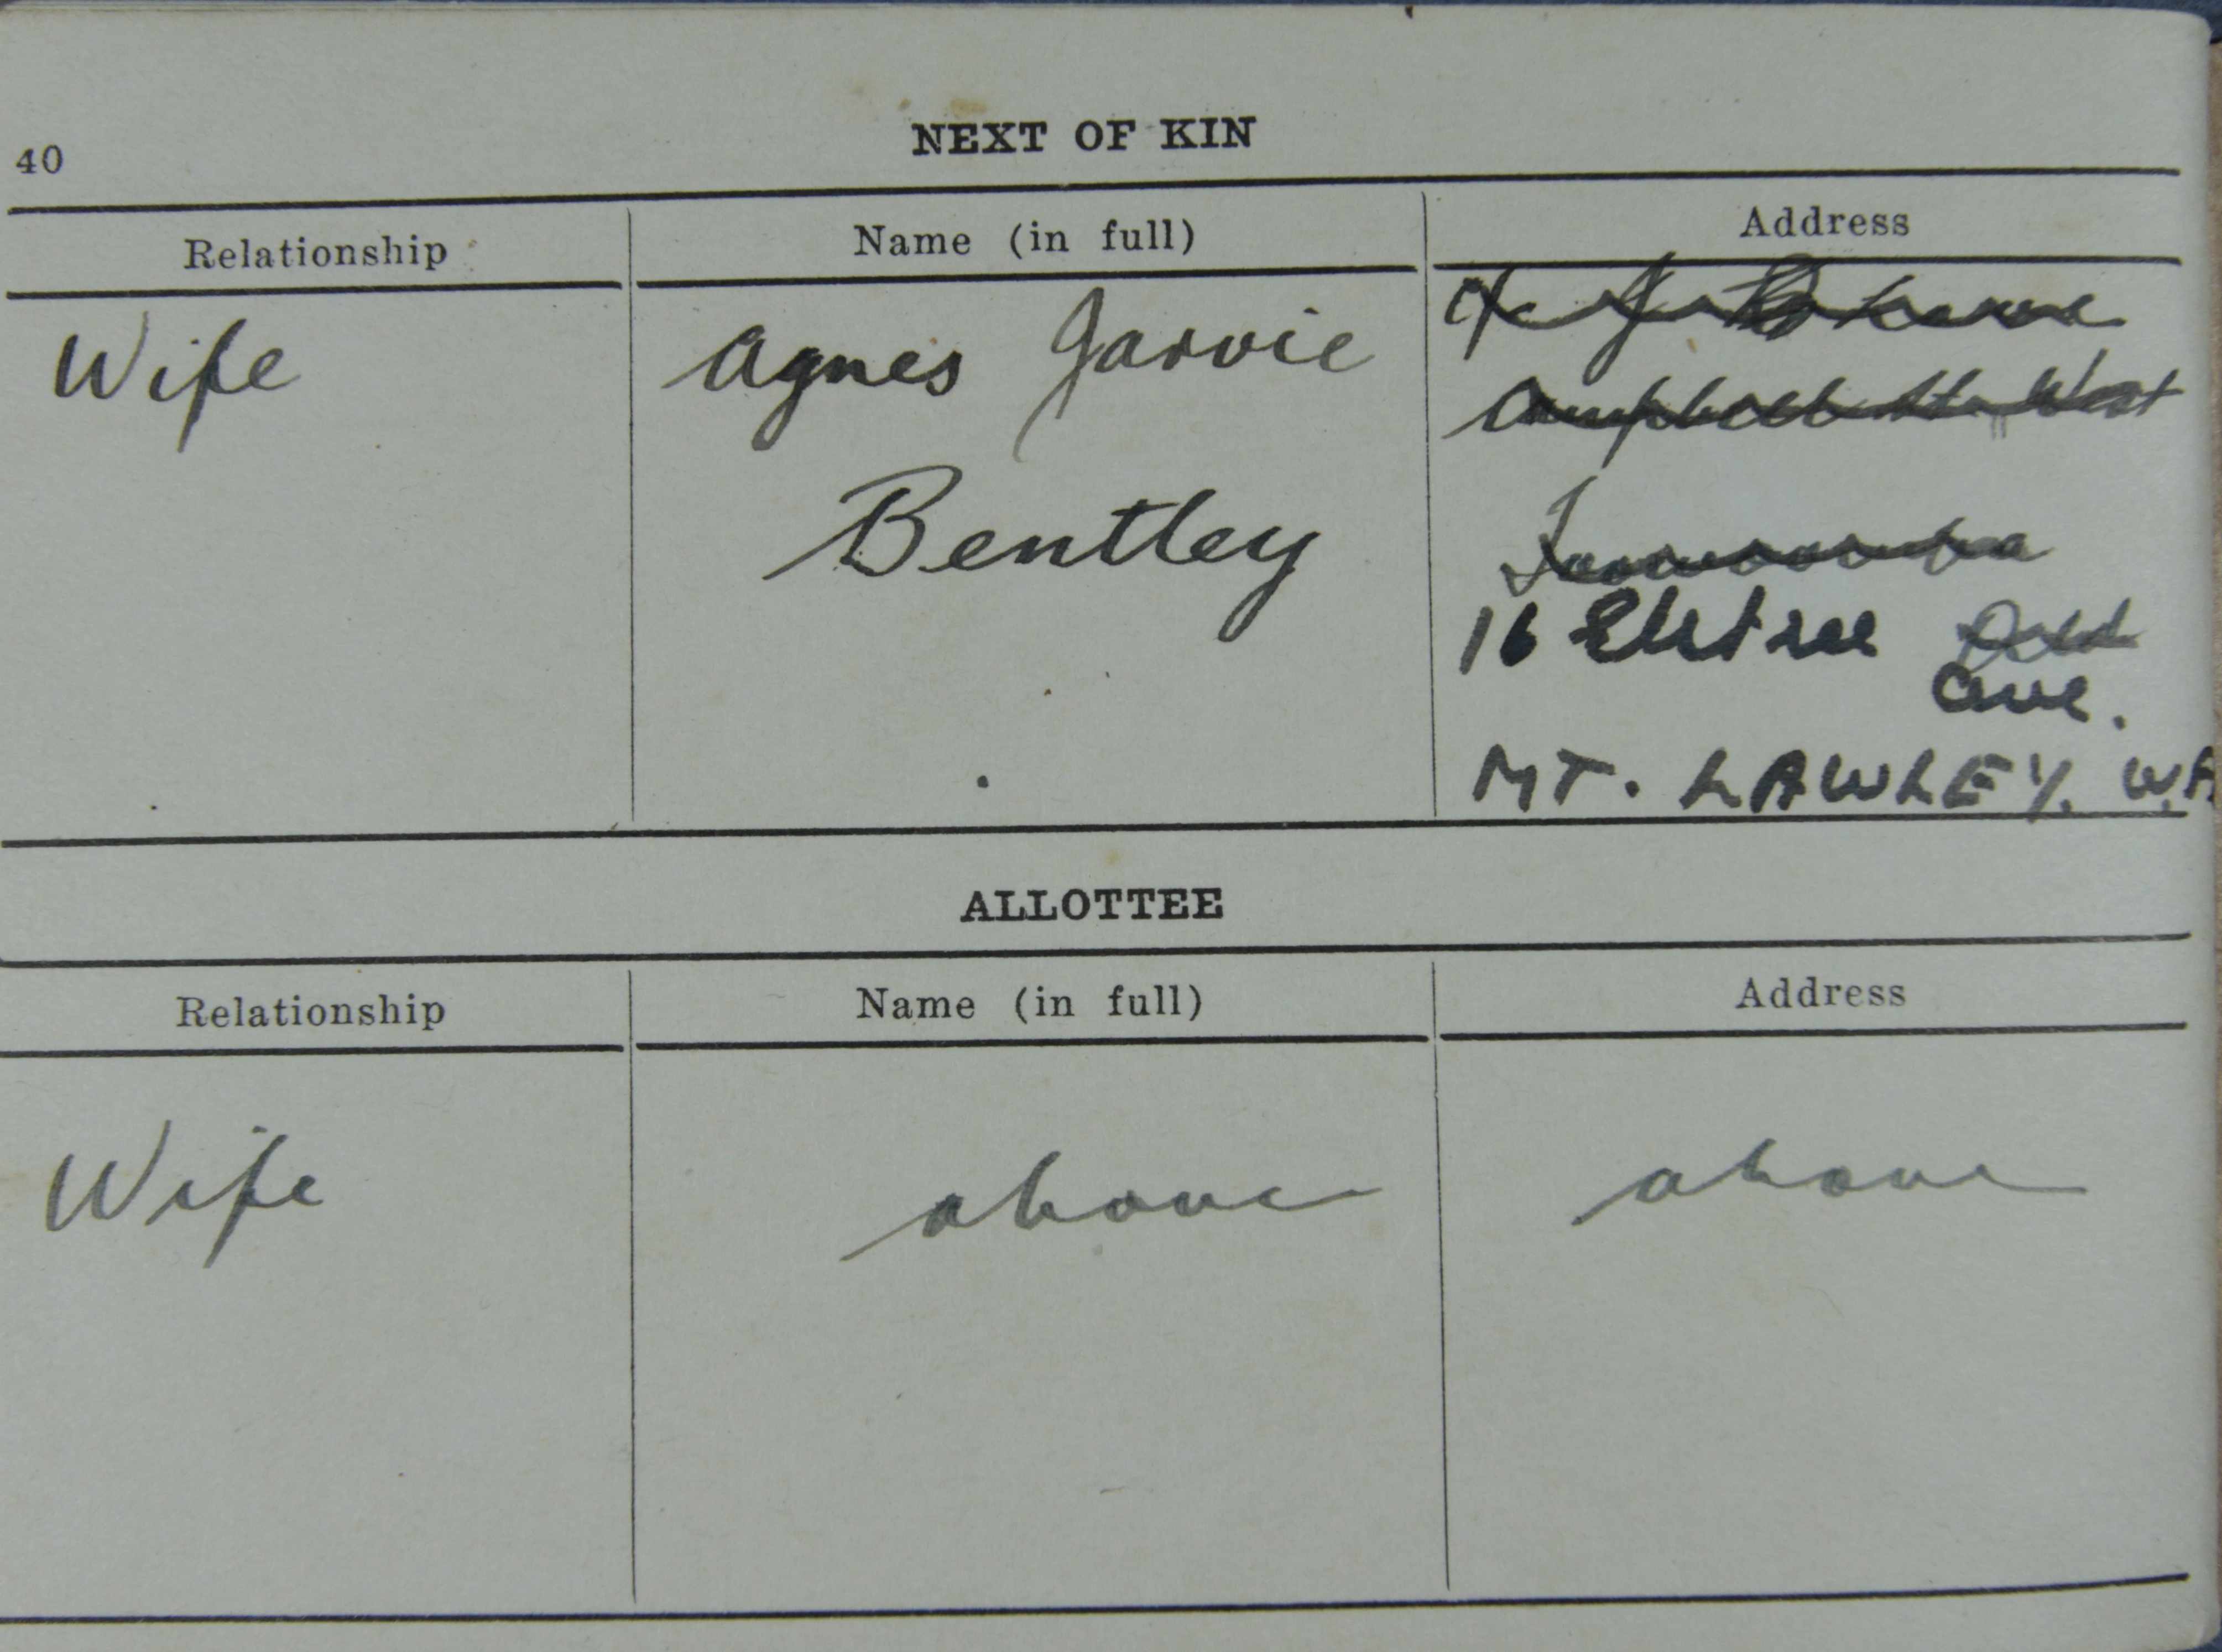 40
NEXT OF KIN
Relationship Name (in full) Address
Wife Agnes Jarvie c/o
Campbell St. West
Bentley Toowoomba
16 Elstree Qld
ave.
MT. LAWLEY. W.A
ALLOTTEE
Relationship Name (in full) Address
Wife above above